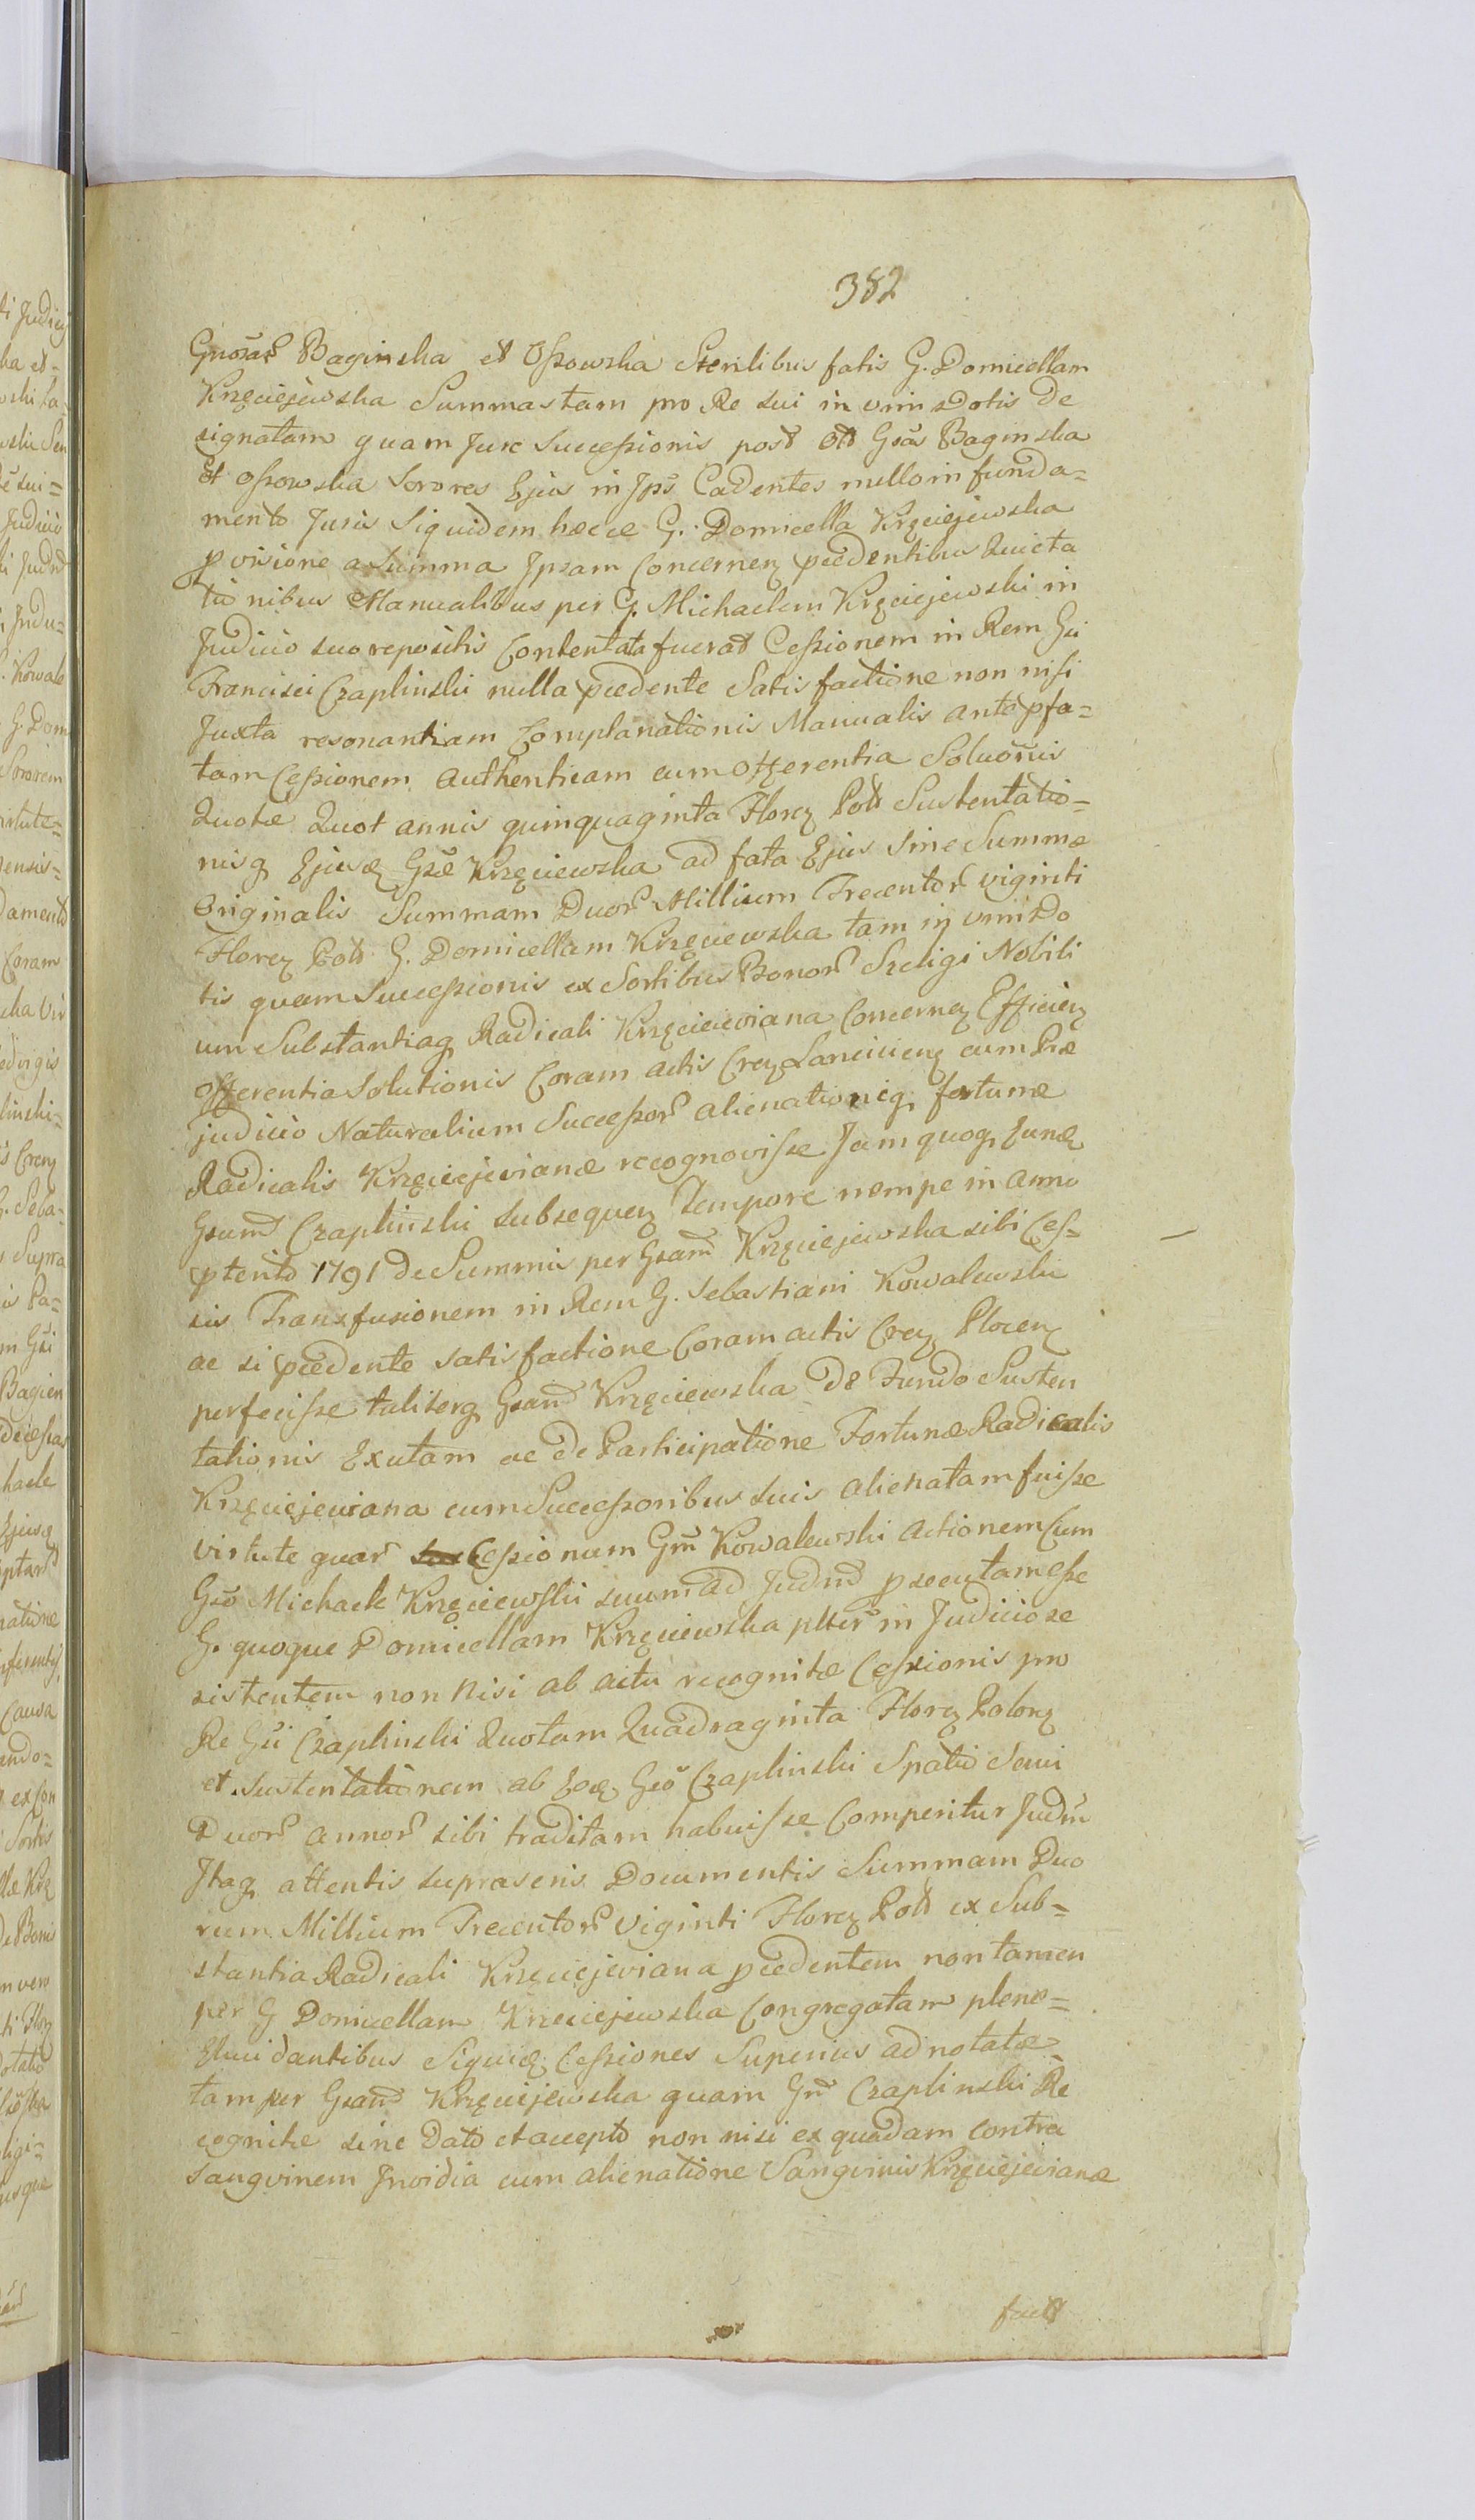 382
Gnosar Baginska et Ossowska Sterilibus fatis G. Domicellam
Krzęciejewska Summas tam pro Re sui in vim Dotis De
signatam quam Jure Successionis post Gsas Baginska
Et Ossowska Sorores Ejus in Jps Cadentes nullo in funda=
mento Juris Siquidem hacce G. Domicella Krzęciejewska
provisione a Summa Jpsam Concernen pcedentibus Quieta
tionibus Manualibus per G. Michaelem Krzęciejewski in
Judicio suo repositis Contentata fuerat Cessionem in Rem Gsi
Francisci Czaplinski nulla pcedente Satisfactione non nisi
Juxta resonantiam Complanationis Manualis ante pfa=
tam Cessionem Authenticam cum Offerentia Soluonis
Quotæ Quot annis quinquaginta Floren Pol Sustentatio=
nisq Ejusd Gsæ Krzęciewska ad fata Ejus sine Summæ
Originalis Summam Duor Millium Trecentor viginti
Floren Pol G. Domicellam Krzęciewska tam in vim Do
tis quam Successionis ex Sortibus Bonor Szeligi Nobili
um Substantiaq Radicali Krzęciewiana Concernen Efficien
Offerentia Solutionis Coram actis Cren Lancicien cum Præ
judicio Naturalium Successor alienationeq fortunæ
Radicalis Krzęciejevianæ recognovisse Jam quoq Eund
Gsum Czaplinski subsequen Tempore nempe in anno
ptento 1791 de Summis per Gsam Krzęciejewska sibi Ces=
sis Transfusionem in Rem G. Sebastiani Kowalewski
ac si pcedente satisfactione Coram actis Cren Plocen
perfecisse taliterq Gsam Krzęciewska De Fundo Susten
tationis Exutam ac De Participatione Fortunæ Radicalis
Krzęciejeviana cum Successoribus suis alienatam fuisse
virtute quar Cessionum Gm Kowalewski Actionem Cum
Gso Michaele Krzęciewski suum ad Judm psecutam esse
G. quoque Domicellam Krzęciewska plter in Judicio se
sistentem non Nisi ab actu recognitæ Cessionis pro
Re Gsi Czaplinski Quotam Quadraginta Floren Polon
et Sustentationem ab Eod Gso Czaplinski Spatio Semi
Duor annor sibi traditam habuisse Comperitur Judm
Jtaq attentis supraseris Documentis Summam Duo
rum Millium Trecentor Viginti Floren Pol ex Sub=
stantia Radicali Krzęciejeviana pcedentem non tamen
per G Domicellam Krzęciejewska Congregatam plene=
Elucidantibus Siquid Cessiones Superius adnotatæ
tam per Gsam Krzęciejewska quam Gm Czaplinski Re
cognitæ sine Dato et accepto non nisi ex quadam contra
Sangvinem Jnvidia cum alienatione Sangvinis Krzęciejevianæ